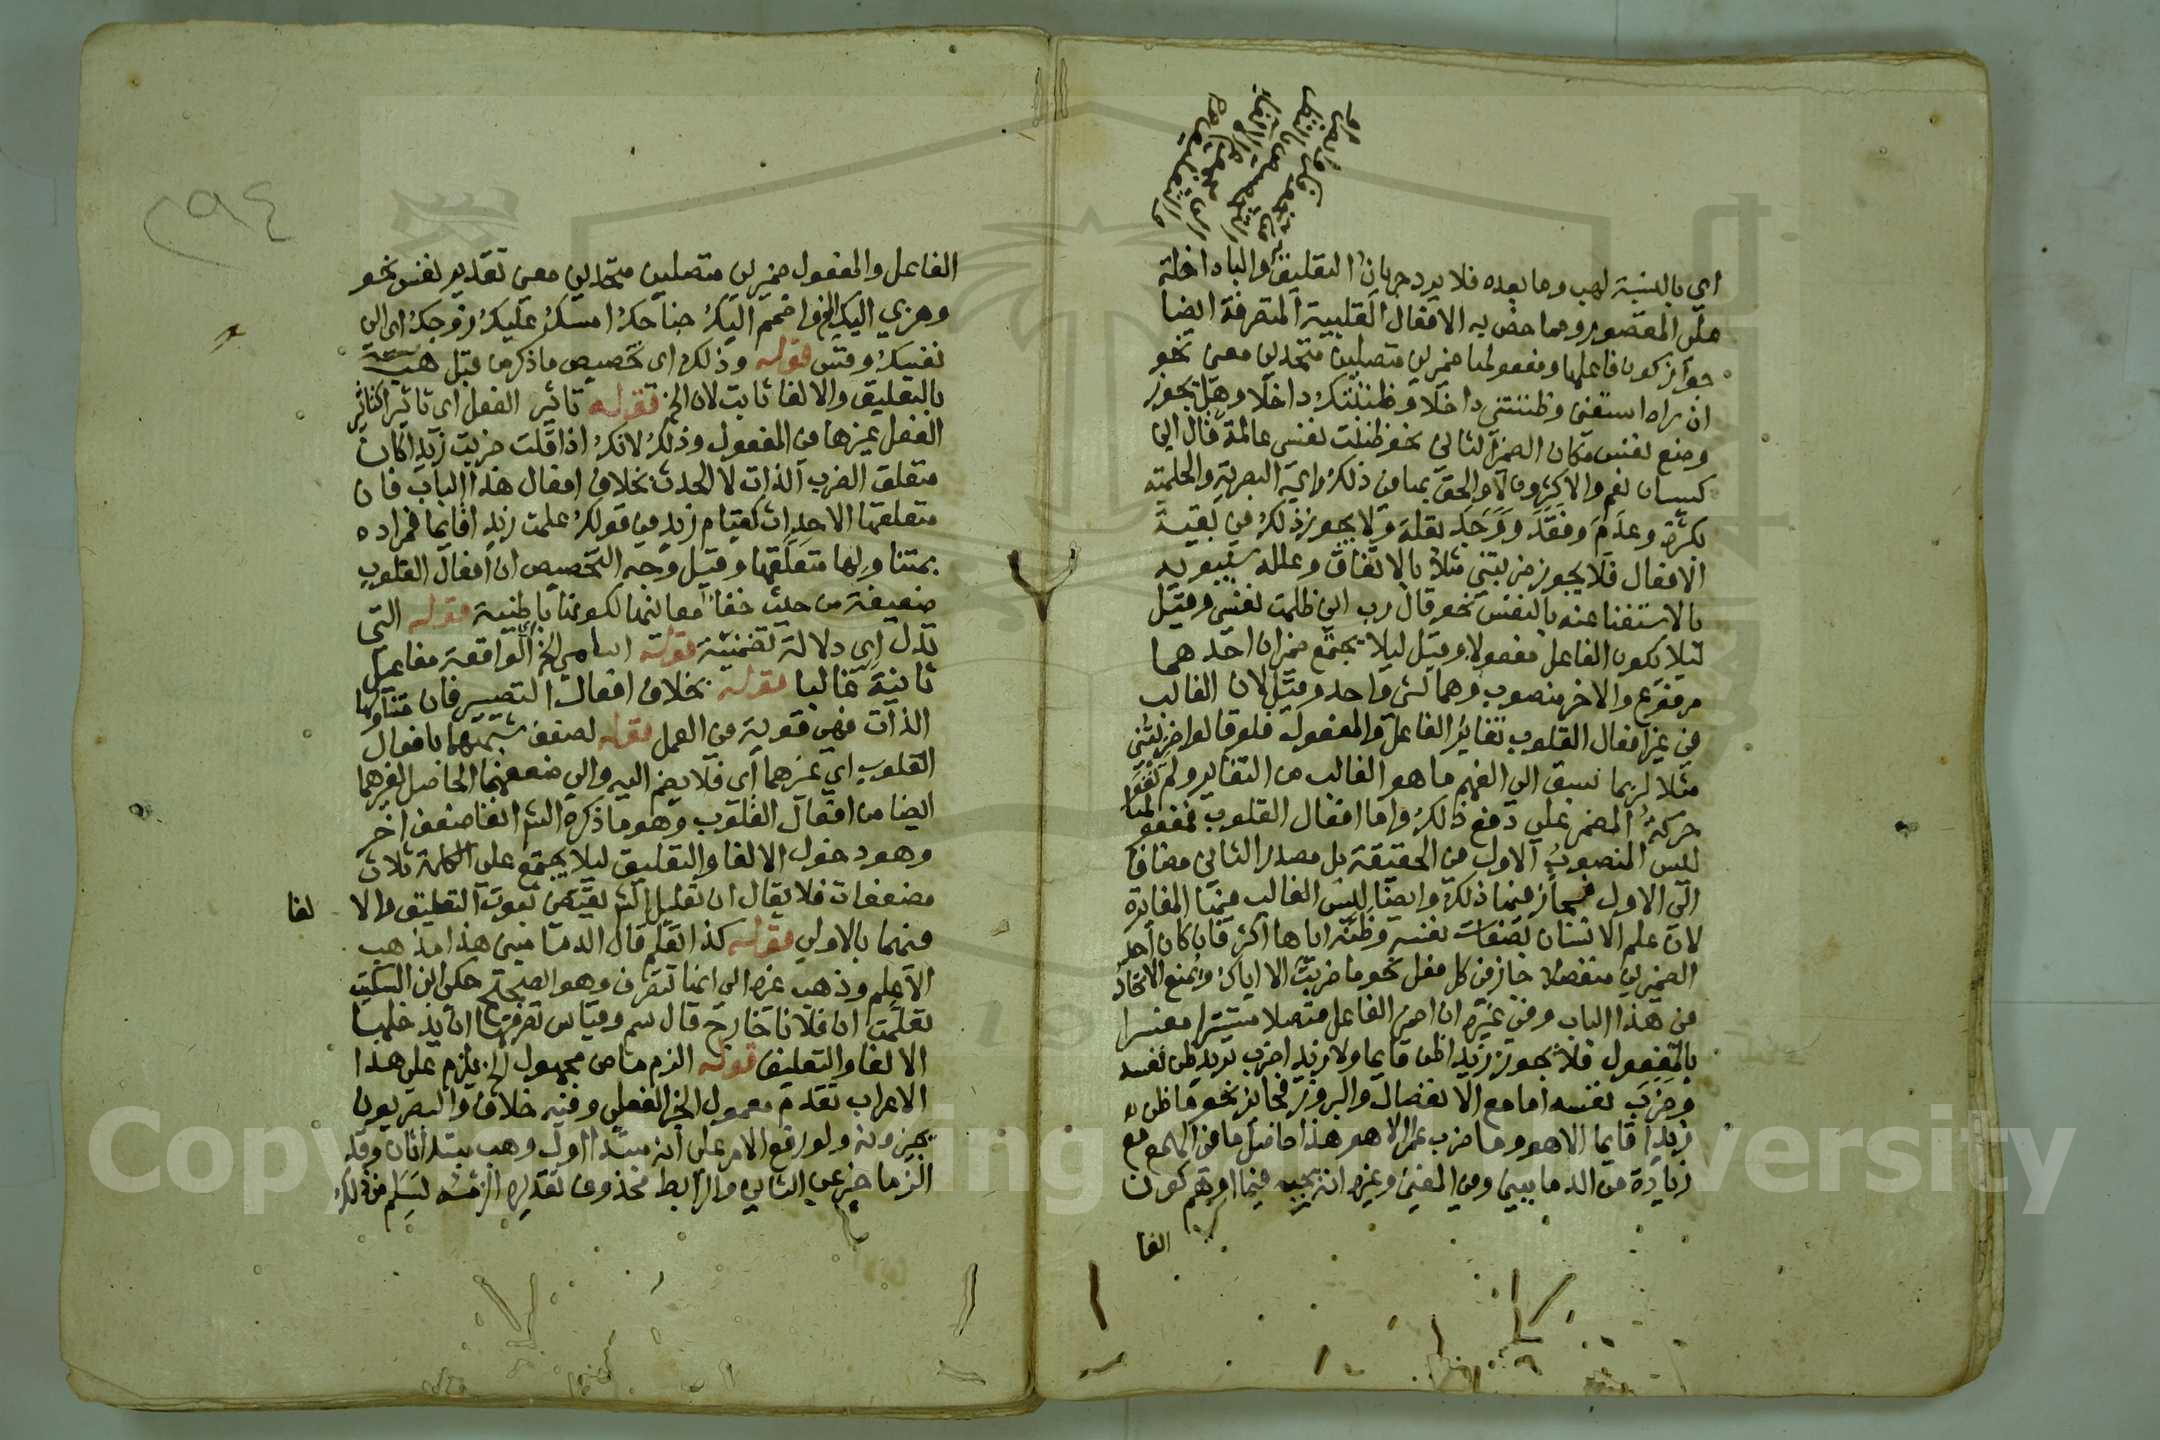 اي بالنسبة لهب وما بعده فلا يرد جريان التعليق والباء داخلة
على المقصور ومما خص به الافعال القلبية المتصرفة ايضا
جواز كون فاعلها ومفعولها ضميرين متصلين متحدين معنى نحو
ان راه استغنى وظننتني داخلا وظننتك داخلا وهل يجوز
وضع نفس مكان الضمير الثاني نحو ظننت نفسي عالمة قال ابن
كيسان نعم والاكثرون لا والحق بها من ذلك راي البصرية والحلمية
بكثرة وعدم وفقد ووجد بقلة ولا يجوز ذلك في بقية
الافعال فلا يجوز ضربتني مثلا بالاتفاق وعلله سيبويه
بالاستغنا عنه بالنفس نحو قال رب اني ظلمت نفسي وقيل
ليلا يكون الفاعل مفعولا وقيل ليلا يجتمع ضميران احدهما
مرفوع والاخر منصوب وهما لشي واحد وقيل لان الغالب
في غير افعال القلوب تغاير الفاعل والمفعول فلو قالوا ضربتني
مثلا لربما سبق الى الفهم ما هو الغالب من التغاير ولم تقو
حركة المضمر على دفع ذلك واما افعال القلوب فمفعولها
ليس المنصوب الاول في الحقيقة بل مصدر الثاني مضافا
الى الاول فجاز فيها ذلك وايضا ليس الغالب فيها المغايرة
لان علم الانسان بصفات نفسه وظنه اياها اكثر فان كان احد
الضميرين منفصلا جاز في كل فعل نحو ما ضربت الا اياك ويمنع الاتحاد
في هذا الباب وفي غيره ان اضمر الفاعل متصلا مستترا مفسرا
بالمفعول فلا يجوز زيدا ظن قايما ولا زيدا ضرب تريد ظن نفسه
وضرب نفسه اما مع الانفصال والبروز فجائز نحو ما ظن
زيدا قايما الا هو وما ضرب عمرا الا هو هذا حاصل ما في الهمع مع
زيادة من الدماميني وفي المغني وغيره انه يجب فيما اوهم كون
الفا
٢٩٤
الفاعل والمفعول ضميرين متصلين متحدين معنى تقدير نفس نحو
وهزي اليك الخ واضمم اليك جناحك امسك عليك زوجك اي الى
نفسك وقس قوله وذلك اي تخصيص ما ذكر من قبل هب
بالتعليق والالغا ثابت لان الخ قوله تاثير الفعل اي تاثيرا كتاثير
الفعل غيرها في المفعول وذلك لانك اذا قلت ضربت زيدا كان
متعلق الضرب الذات لا الحدث بخلاف افعال هذا الباب فان
متعلقها الاحداث كقيام زيد في قولك علمت زيدا قايما فمراده
بمتناولها متعلقها وقيل وجه التخصيص ان افعال القلوب
ضعيفة من حيث خفاء معانيها لكونها باطنية قوله التي
تدل اي دلالة تضمنية قوله اسامي الخ الواقعة مفاعيل
ثانية غالبا قوله بخلاف افعال التصيير فان متناولها
الذات فهي قوية في العمل قوله لضعف شبههما بافعال
القلوب اي غيرهما اي فلا يضم اليه والى ضعفهما الحاصل لغيرهما
ايضا من افعال القلوب وهو ما ذكره الش انفا ضعف اخر
وهو دخول الالغا والتعليق ليلا يجتمع على الكلمة ثلاث
مضعفات فلا يقال ان تعليل الش يقتضي ثبوت التعليق والا لغا
فيهما بالاولى قوله كذا تعلم قال الدماميني هذا مذهب
الاعلم وذهب غيره الى انها تتصرف وهو الصحيح حكى ابن السكيت
تعلمت ان فلانا خارج قال سم وقياس تصرفها ان يدخلها
الالغا والتعليق قوله الزم ماض مجهول الخ يلزم على هذا
الاعراب تقدم معمول الخبر الفعلي وفيه خلاف والبصريون
يجيزونه ولو رفع الامر على انه مبتدا اول وهب مبتدا ثان وقد
الزما خبر عن الثاني والرابط محذوف تقديره الزمه لسلم من ذلك